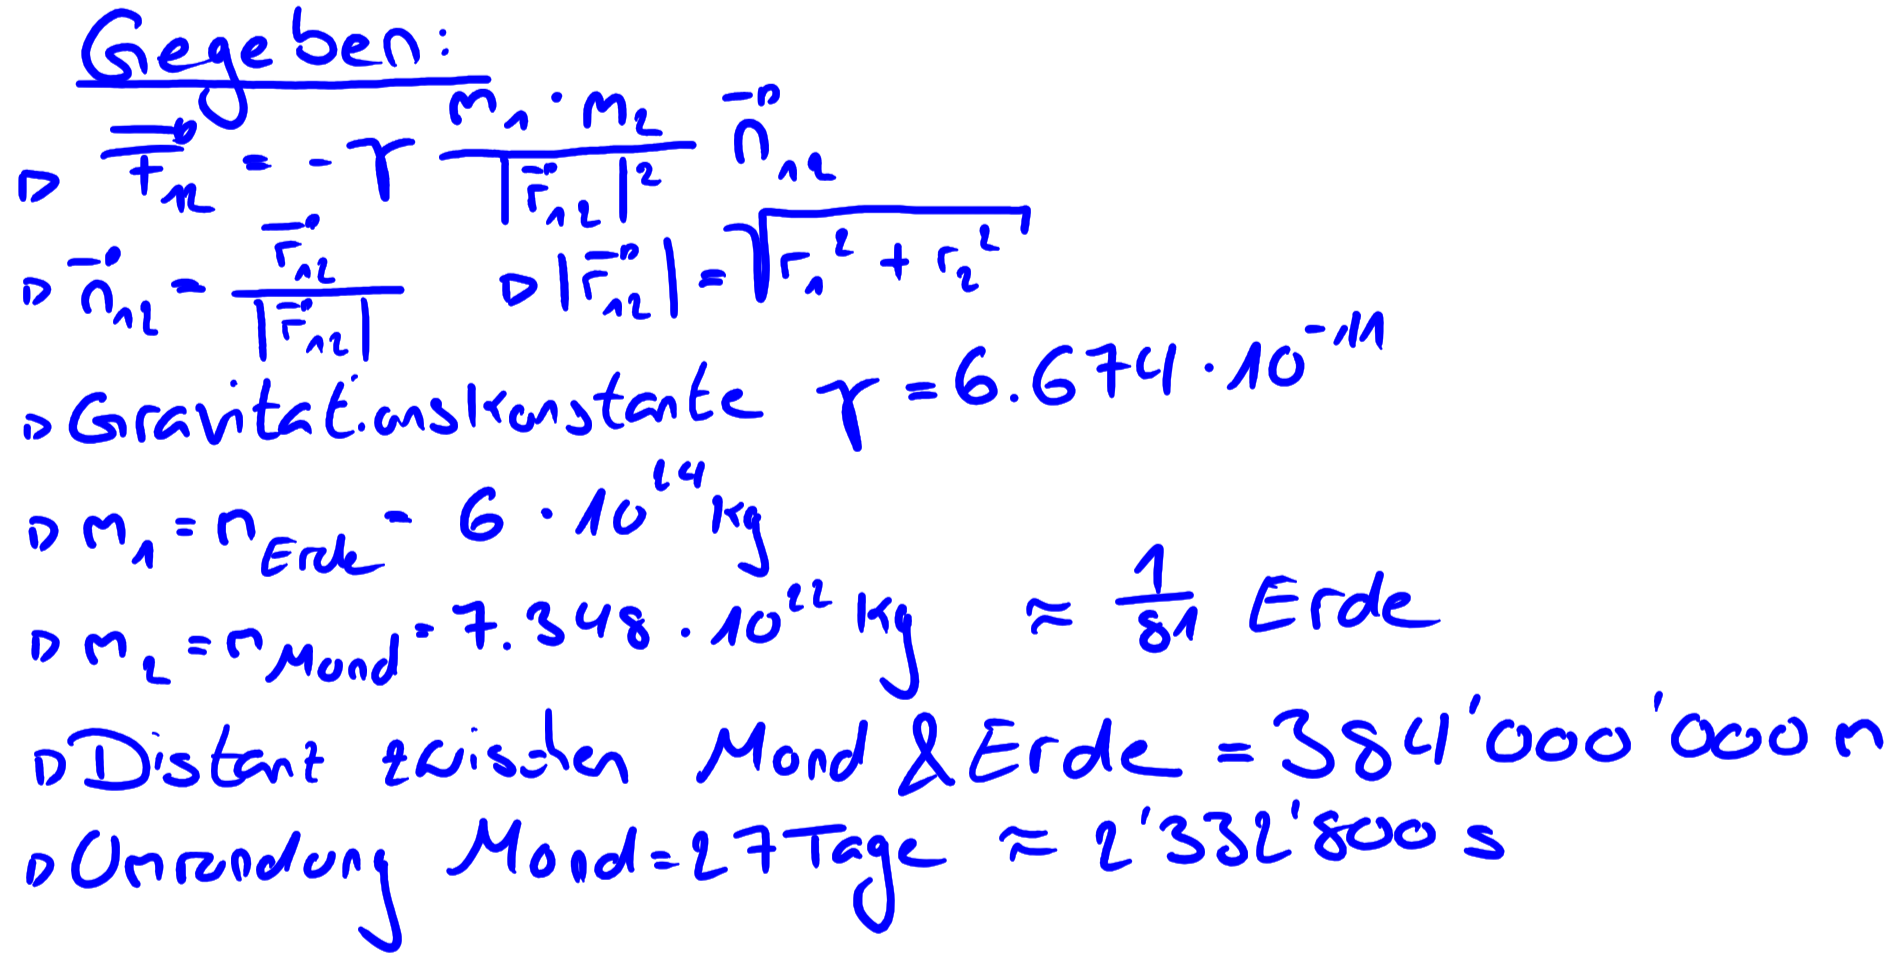 Gegeben:
▷ F⃗₁₂ = - γ (m₁ · m₂) / |r⃗₁₂|² n⃗₁₂
▷ n⃗₁₂ = r⃗₁₂ / |r⃗₁₂| ▷ |r⃗₁₂| = √(r₁² + r₂²)
▷ Gravitationskonstante γ = 6.674 · 10⁻¹¹
▷ m₁ = m_Erde = 6 · 10²⁴ kg
▷ m₂ = m_Mond = 7.348 · 10²² kg ≈ 1/81 Erde
▷ Distanz zwischen Mond & Erde = 384'000'000 m
▷ Umrundung Mond = 27 Tage ≈ 2'332'800 s